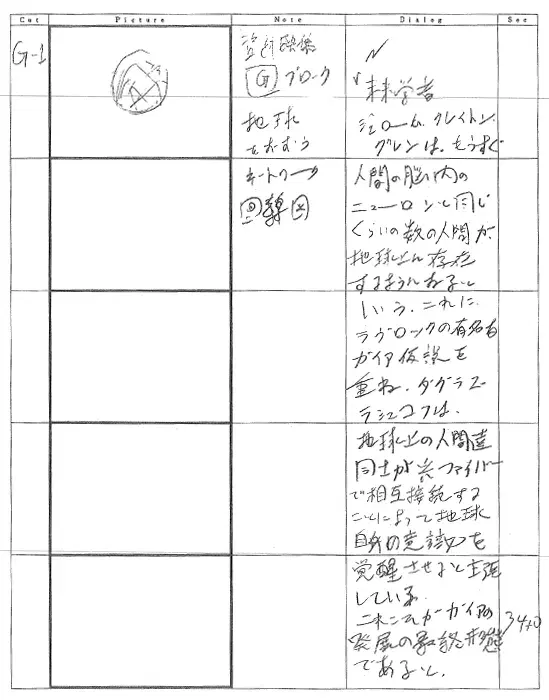 Cut Picture Note Dialog Sec
G-1
資料映像
G ブロック
地球
をおおう
ネットワーク
回線図
N
未来学者
ジェローム、クレイトン、
グレンは、もうすぐ
人間の脳内の
ニューロンと同じ
くらいの数の人間が、
地球上に存在
するようになると
いう、これに
ラヴロックの有名な
ガイア仮説を
重ね、ダグラス・
ラシュコフは、
地球上の人間達
同士が光ファイバー
で相互接続する
ことによって地球
自身の意識を
覚醒させると主張
している。
これこそがガイアの
発展の最終形態
であると。
34+0